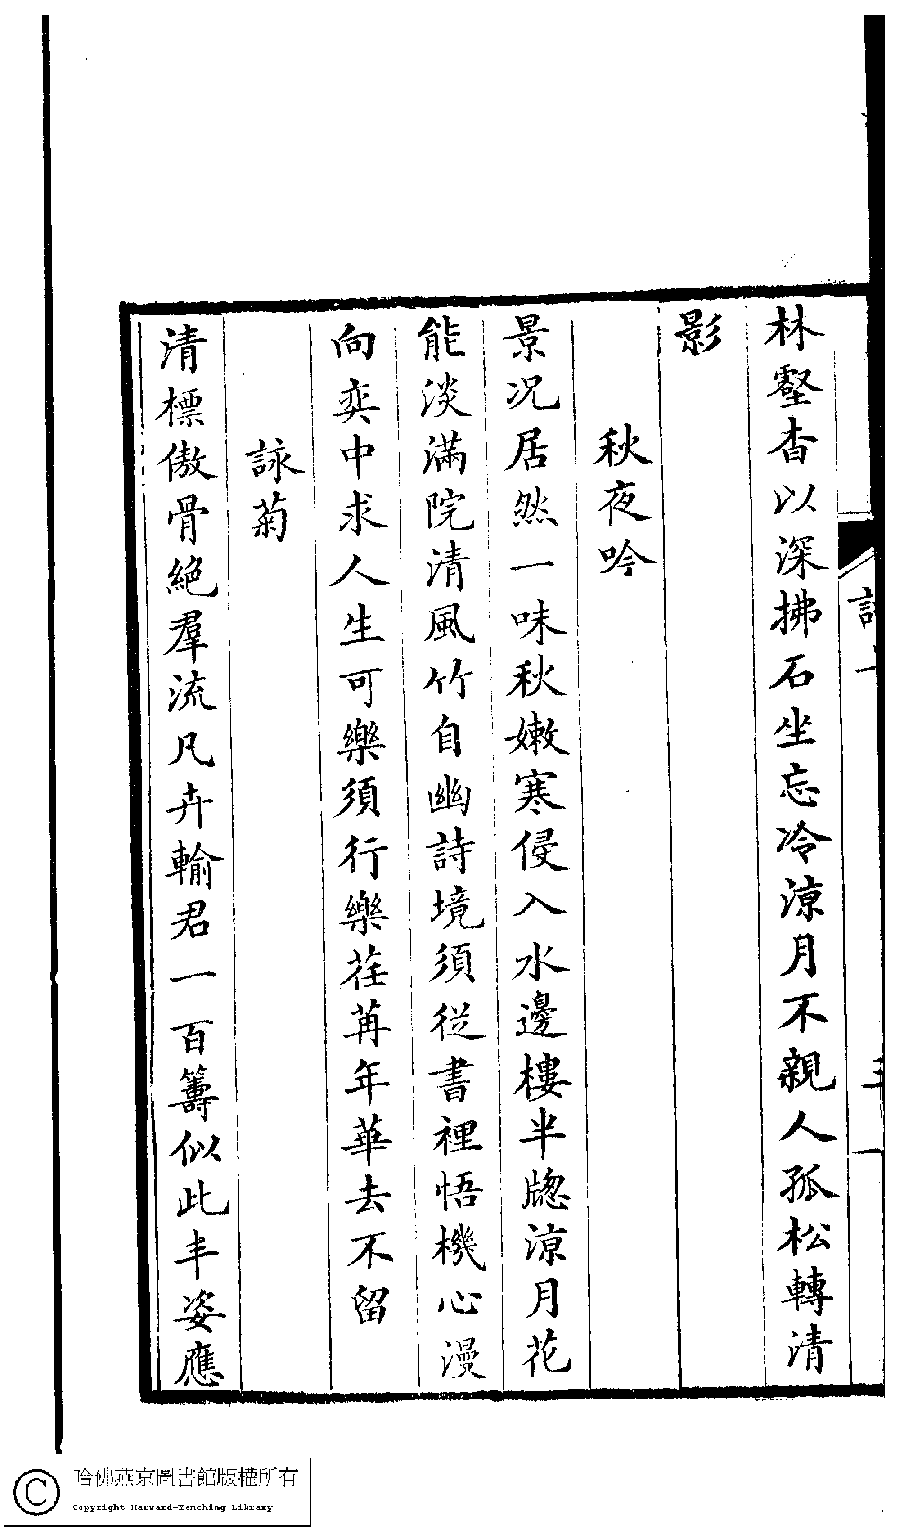 林壑杳以深拂石坐忘冷涼月不親人孤松轉清
影
秋夜吟
景况居然一味秋嫩寒侵入水邊樓半牕涼月花
能淡滿院清風竹自幽詩境須從書裡悟機心漫
向奕中求人生可樂須行樂荏苒年華去不留
詠菊
清標傲骨絶羣流凡卉輸君一百籌似此丰姿應
哈佛燕京圖書館版權所有
Copyright Harvard-Yenching Library